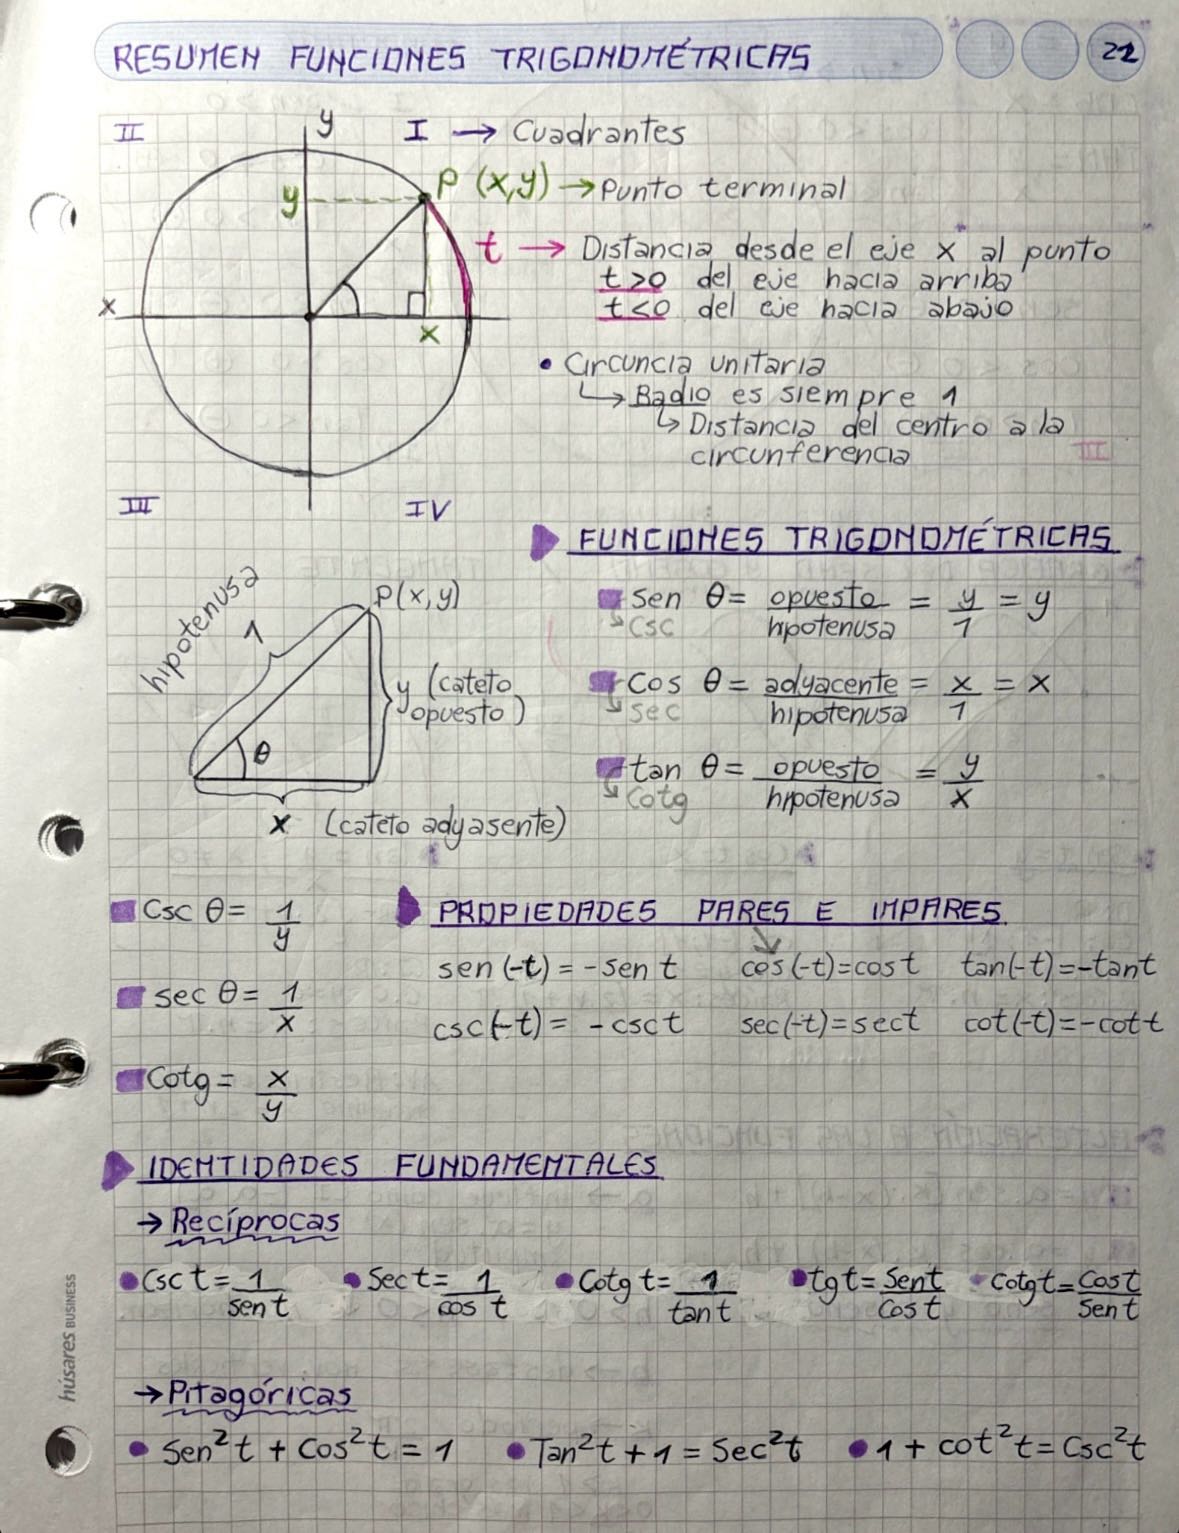 RESUMEN FUNCIONES TRIGONOMÉTRICAS 22
II y I → Cuadrantes
y P (x,y) → Punto terminal
t → Distancia desde el eje "x" al punto
t>0 del eje hacia arriba
t<0 del eje hacia abajo
x x
• Circuncia unitaria
↳ Radio es siempre 1
↳ Distancia del centro a la
circunferencia
III IV
▶ FUNCIONES TRIGONOMÉTRICAS
hipotenusa 1 P(x,y)
y (cateto
opuesto)
θ
x (cateto adyasente)
sen θ = opuesto/hipotenusa = y/1 = y
↘ csc
cos θ = adyacente/hipotenusa = x/1 = x
↘ sec
tan θ = opuesto/hipotenusa = y/x
↘ cotg
Csc θ = 1/y
sec θ = 1/x
Cotg = x/y
▶ PROPIEDADES PARES E IMPARES
sen (-t) = -sen t cos (-t) = cos t tan(-t) = -tan t
csc(-t) = -csc t sec(-t) = sec t cot(-t) = -cot t
▶ IDENTIDADES FUNDAMENTALES
→ Recíprocas
• Csc t = 1/sen t • Sec t = 1/cos t • Cotg t = 1/tan t • tg t = Sen t/Cos t • cotg t = Cos t/Sen t
→ Pitagóricas
• Sen²t + Cos²t = 1 • Tan²t + 1 = Sec²t • 1 + cot²t = Csc²t
húsares BUSINESS